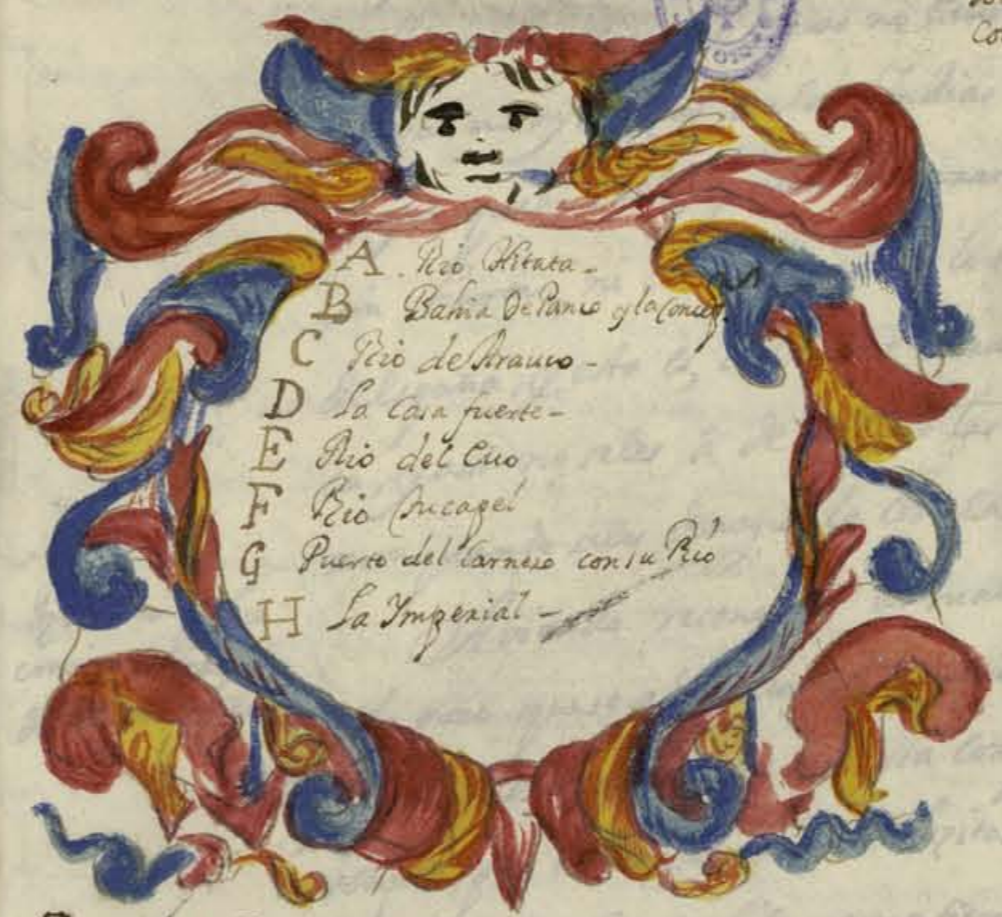 A. Rio Hitata -
B Bahia De Panco y la Concep.
C Rio de Arauco -
D La Casa fuerte -
E Rio del Cuo
F Rio
G Puerto del Carnero con su Rio
H La Ymperial -